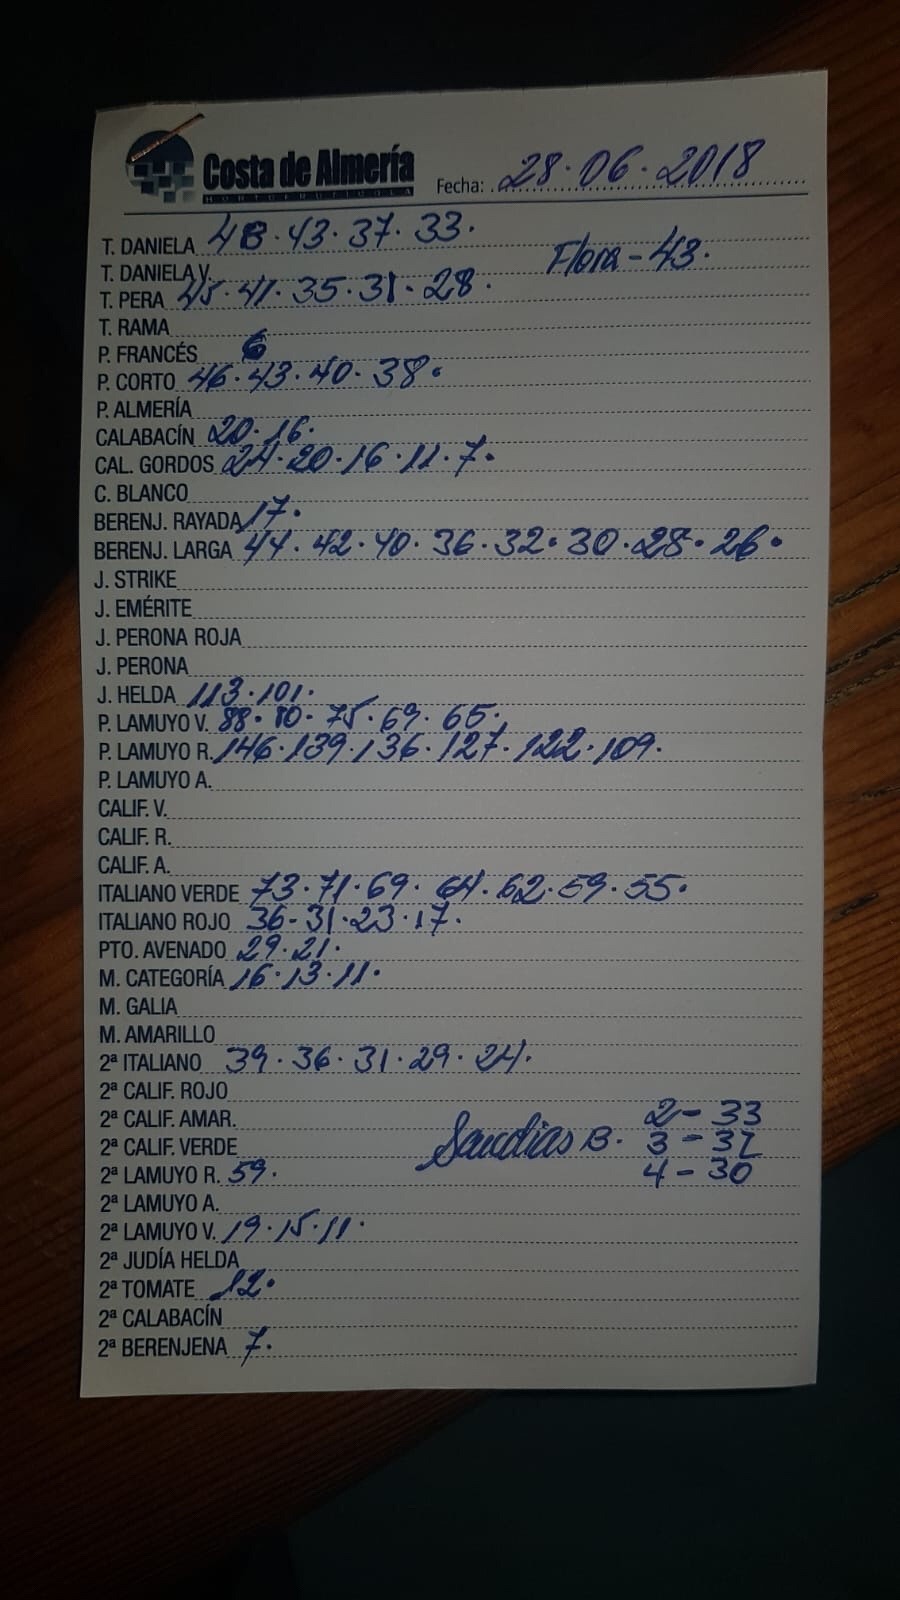 Costa de Almería
HORTOFRUTÍCOLA
Fecha: 28·06·2018
T. DANIELA 48·43·37·33·
Flora - 43·
T. DANIELA V.
T. PERA 45·41·35·31·28·
T. RAMA
P. FRANCÉS 6
P. CORTO 46·43·40·38·
P. ALMERÍA
CALABACÍN 20·16·
CAL. GORDOS 24·20·16·11·7·
C. BLANCO
BERENJ. RAYADA 17·
BERENJ. LARGA 44·42·40·36·32·30·28·26·
J. STRIKE
J. EMÉRITE
J. PERONA ROJA
J. PERONA
J. HELDA 113·101·
P. LAMUYO V. 88·80·75·69·65·
P. LAMUYO R. 146·139·136·127·122·109·
P. LAMUYO A.
CALIF. V.
CALIF. R.
CALIF. A.
ITALIANO VERDE 73·71·69·64·62·59·55·
ITALIANO ROJO 36-31·23·17·
PTO. AVENADO 29·21·
M. CATEGORÍA 16·13·11·
M. GALIA
M. AMARILLO
2ª ITALIANO 39·36·31·29·24·
2ª CALIF. ROJO
2ª CALIF. AMAR. 2 - 33
2ª CALIF. VERDE Sandias B. 3 - 32
2ª LAMUYO R. 59· 4 - 30
2ª LAMUYO A.
2ª LAMUYO V. 19·15·11·
2ª JUDÍA HELDA
2ª TOMATE 12·
2ª CALABACÍN
2ª BERENJENA 7·